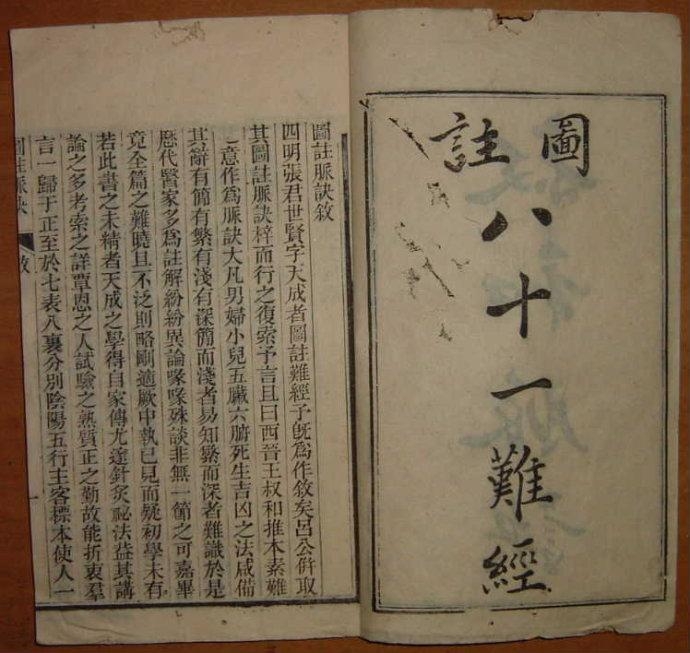 圖註
八十一難經
圖註脈訣敘
四明張君世賢字天成者圖註難經予旣爲作敘矣呂公倂取
其圖註脈訣梓而行之復索予言且曰西晉王叔和推本素難
之意作爲脈訣大凡男婦小兒五臟六腑死生吉凶之法咸備
其辭有簡有繁有淺有深簡而淺者易知繁而深者難識於是
歷代醫家多爲註解紛紛異論喙喙殊談非無一節之可嘉畢
竟全篇之難曉且不泛則略剛適厥中執已見而疑初學未有
若此書之未精者天成之學得自家傳尤邃針炙祕法益其講
論之多考索之詳覃恩之人試驗之熟質正之勤故能折衷羣
言一歸于正至於七表八裏分別陰陽五行主客標本使人一
圖註脈訣 敘 一